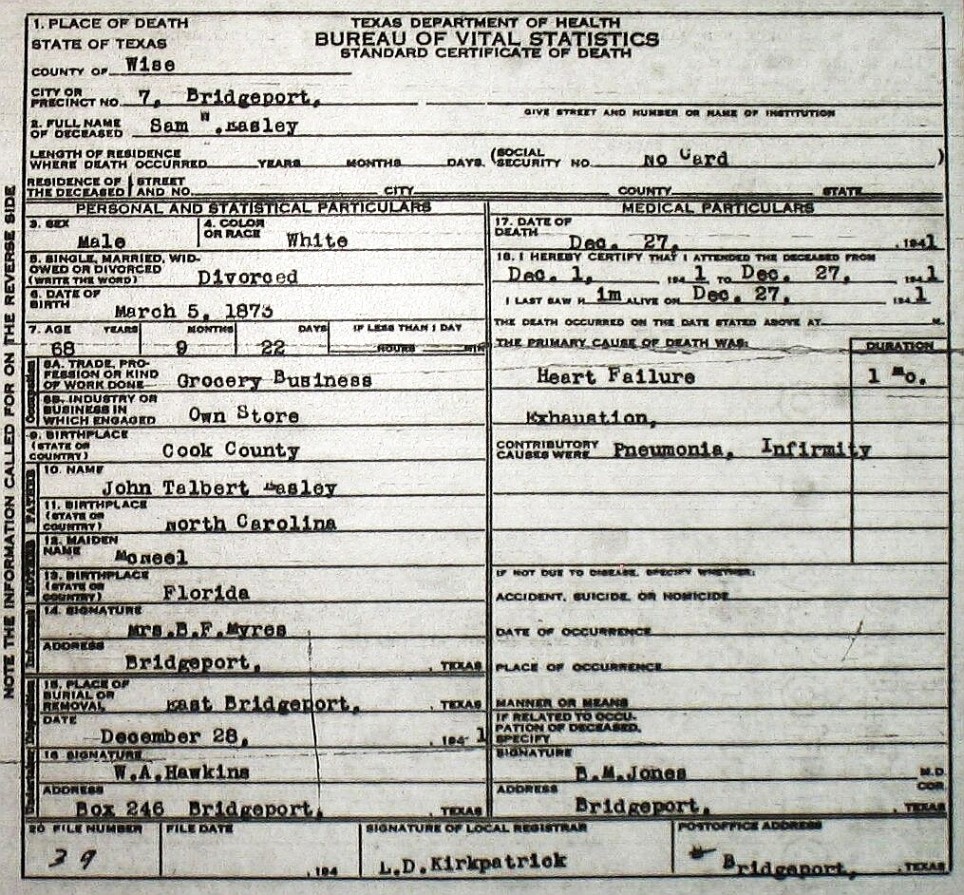 1. PLACE OF DEATH
STATE OF TEXAS
COUNTY OF Wise
TEXAS DEPARTMENT OF HEALTH
BUREAU OF VITAL STATISTICS
STANDARD CERTIFICATE OF DEATH
CITY OR PRECINCT NO. 7, Bridgeport,
GIVE STREET AND NUMBER OR NAME OF INSTITUTION
2. FULL NAME OF DECEASED Sam W. Easley
LENGTH OF RESIDENCE WHERE DEATH OCCURRED YEARS MONTHS DAYS. (SOCIAL SECURITY NO. No Card )
RESIDENCE OF THE DECEASED STREET AND NO. CITY COUNTY STATE
NOTE THE INFORMATION CALLED FOR ON THE REVERSE SIDE
PERSONAL AND STATISTICAL PARTICULARS
3. SEX Male
4. COLOR OR RACE White
5. SINGLE, MARRIED, WIDOWED OR DIVORCED (WRITE THE WORD) Divorced
6. DATE OF BIRTH March 5, 1873
7. AGE YEARS MONTHS DAYS IF LESS THAN 1 DAY
68 9 22 HOURS MIN
Occupation
8A. TRADE, PROFESSION OR KIND OF WORK DONE Grocery Business
8B. INDUSTRY OR BUSINESS IN WHICH ENGAGED Own Store
9. BIRTHPLACE (STATE OR COUNTRY) Cook County
FATHER
10. NAME John Talbert Easley
11. BIRTHPLACE (STATE OR COUNTRY) North Carolina
MOTHER
12. MAIDEN NAME McNeel
13. BIRTHPLACE (STATE OR COUNTRY) Florida
Informant
14. SIGNATURE Mrs.B.F.Myres
ADDRESS Bridgeport, , TEXAS
Disposition
15. PLACE OF BURIAL OR REMOVAL East Bridgeport, , TEXAS
DATE December 28, , 194 1
Undertaker
16 SIGNATURE W.A.Hawkins
ADDRESS Box 246 Bridgeport, , TEXAS
MEDICAL PARTICULARS
17. DATE OF DEATH Dec. 27, , 1941
18. I HEREBY CERTIFY THAT I ATTENDED THE DECEASED FROM
Dec. 1, 194 1 TO Dec. 27, , 194 1
I LAST SAW H im ALIVE ON Dec. 27, , 194 1
THE DEATH OCCURRED ON THE DATE STATED ABOVE AT M.
THE PRIMARY CAUSE OF DEATH WAS: DURATION
Heart Failure 1 Mo.
Exhaustion,
CONTRIBUTORY CAUSES WERE Pneumonia, Infirmity
IF NOT DUE TO DISEASE, SPECIFY WHETHER:
ACCIDENT, SUICIDE, OR HOMICIDE
DATE OF OCCURRENCE
PLACE OF OCCURRENCE
MANNER OR MEANS
IF RELATED TO OCCUPATION OF DECEASED, SPECIFY
SIGNATURE B.M.Jones M.D. COR.
ADDRESS Bridgeport, , TEXAS
20 FILE NUMBER 39
FILE DATE , 194
SIGNATURE OF LOCAL REGISTRAR L.D.Kirkpatrick
POSTOFFICE ADDRESS Bridgeport, , TEXAS